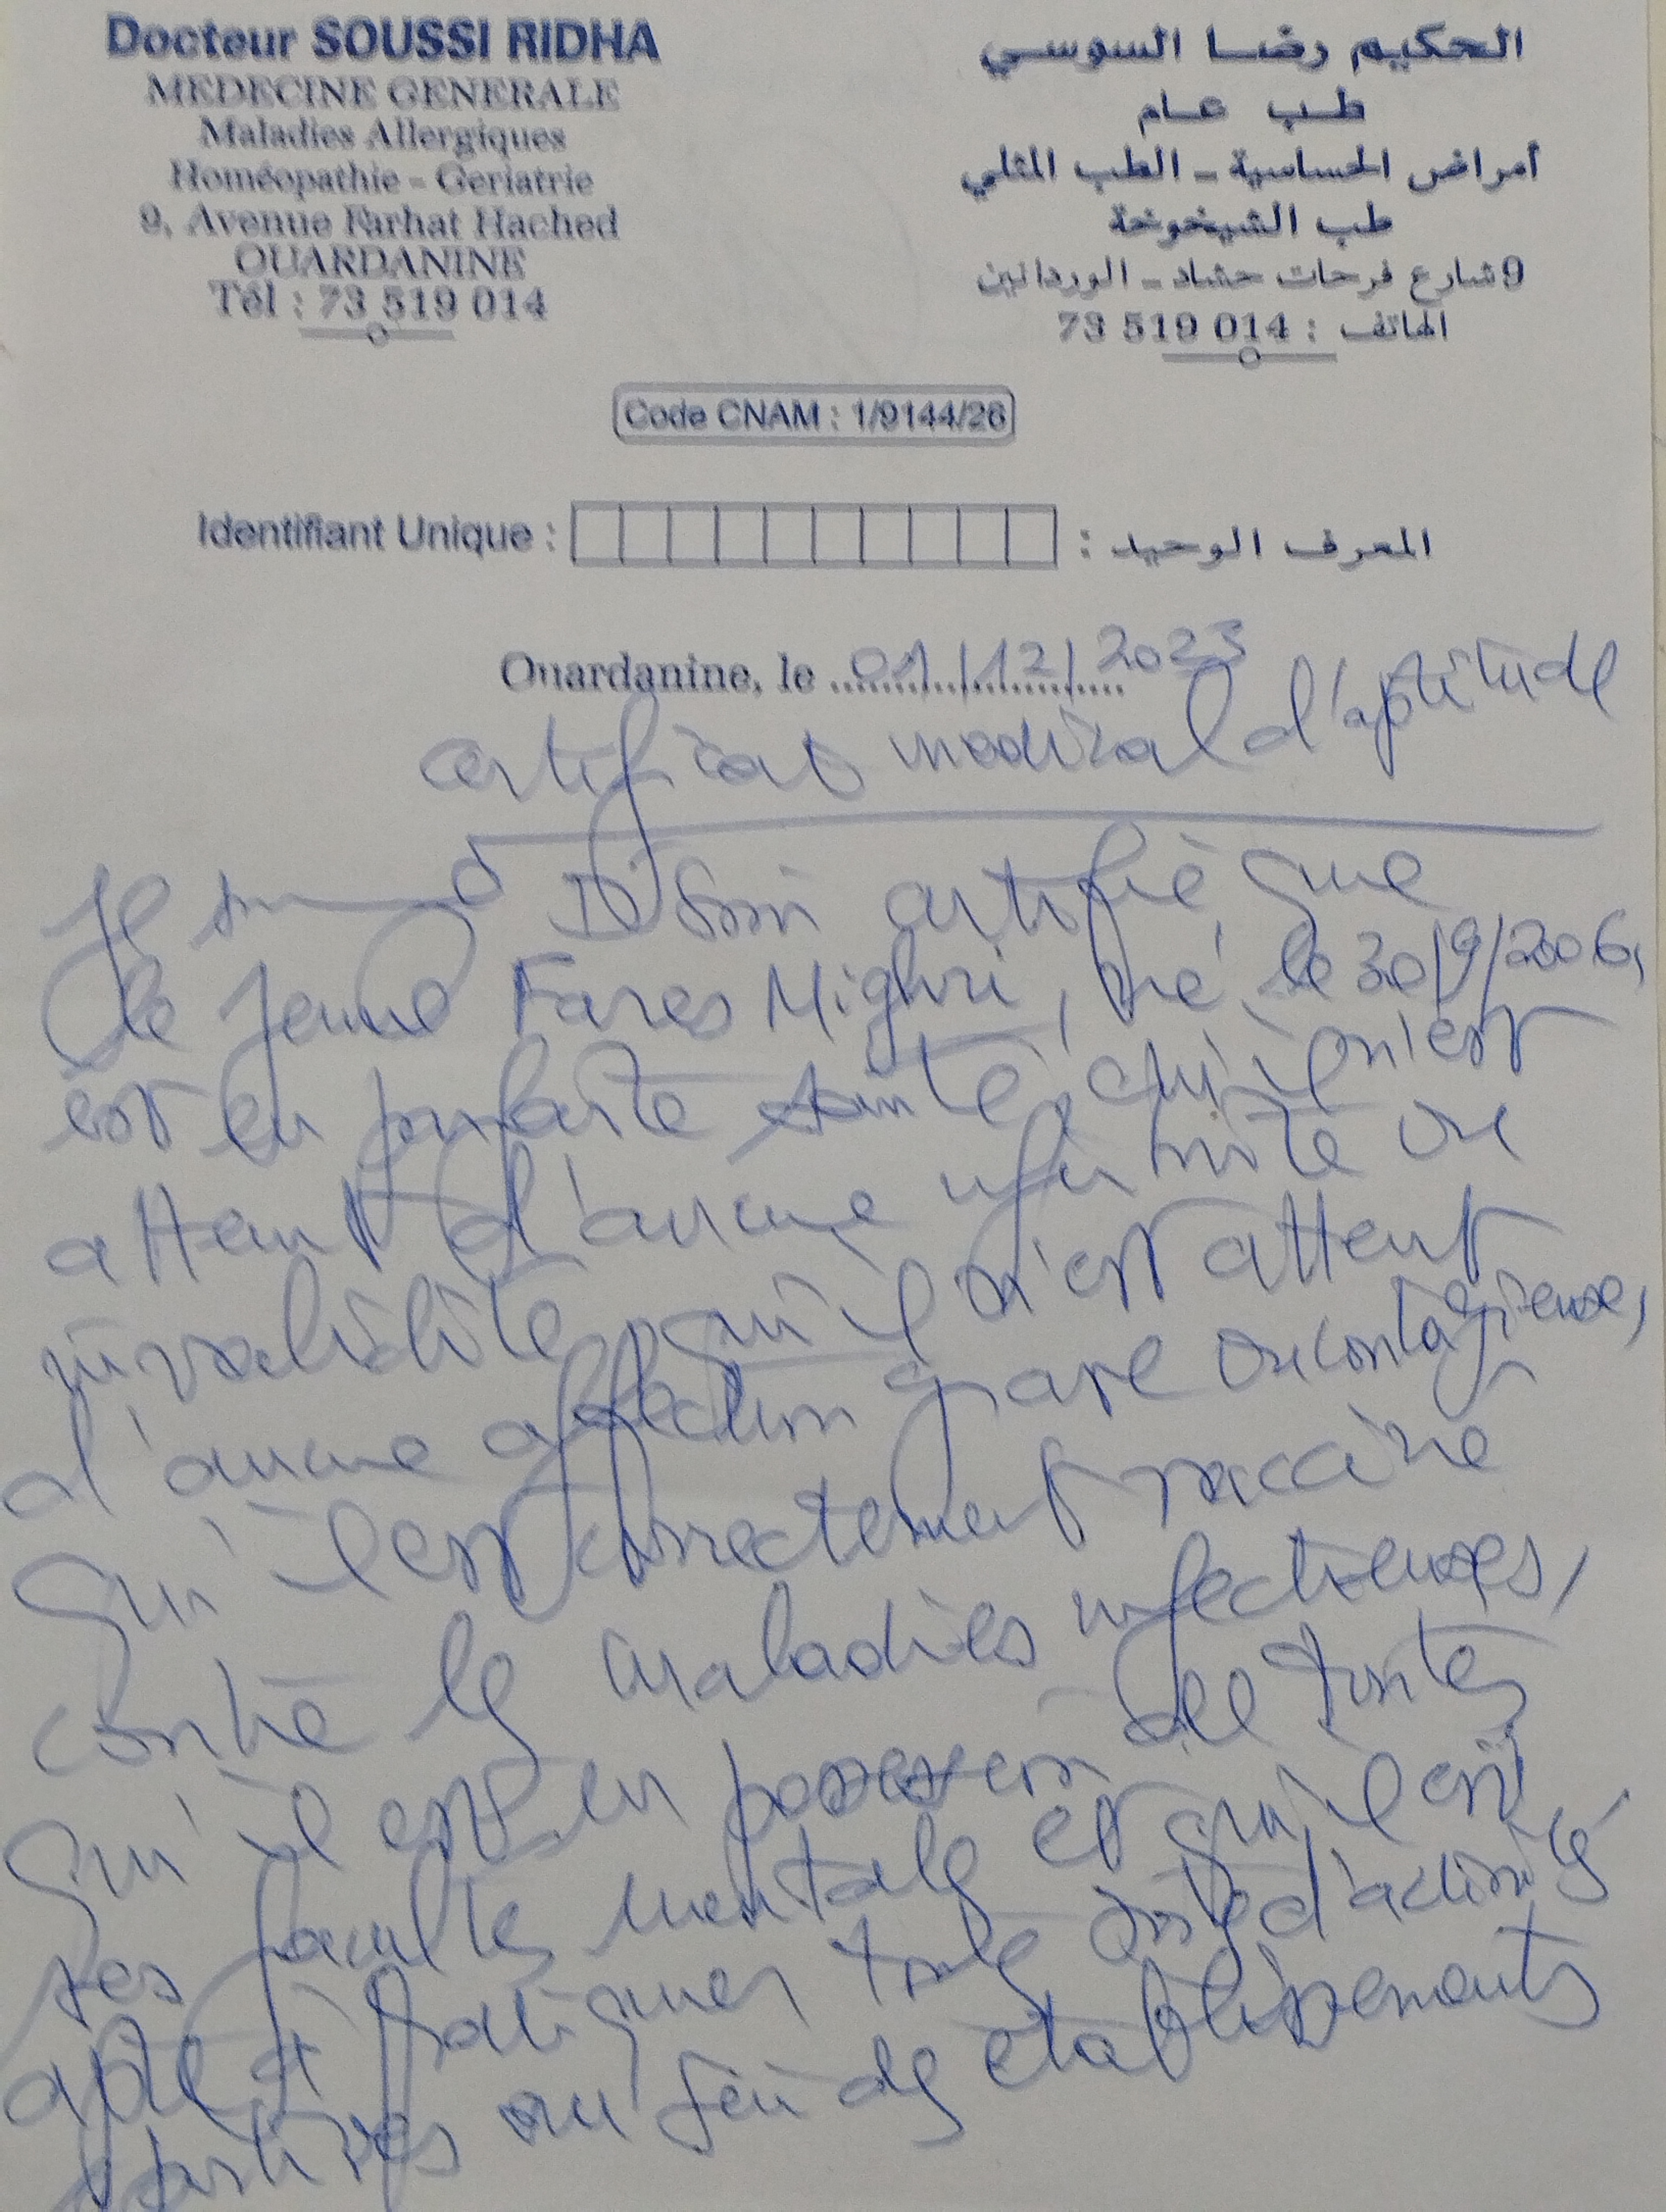 Docteur SOUSSI RIDHA
MEDECINE GENERALE
Maladies Allergiques
Homéopathie - Geriatrie
9, Avenue Farhat Hached
OUARDANINE
Tél : 73 519 014
الحكيم رضا السوسي
طب عام
أمراض الحساسية - الطب المثلي
طب الشيخوخة
9 شارع فرحات حشاد - الوردانين
الهاتف : 73 519 014
Code CNAM : 1/9144/26
Identifiant Unique : المعرف الوحيد :
Ouardanine, le 01/12/2023
certificat médical d'aptitude
Je Dr certifie que
le Jeune Fares Mighri, né le 30/9/2006,
est en parfaite santé, qu'il n'est
atteint d'aucune infirmité ou
invalidité, qu'il n'est atteint
d'aucune affection grave ou contagieuse,
qu'il est correctement vacciné
contre les maladies infectieuses,
qu'il est en possession de toutes
ses facultés mentales et qu'il est
apte à pratiquer toutes d'activités
sportives au sein des établissements